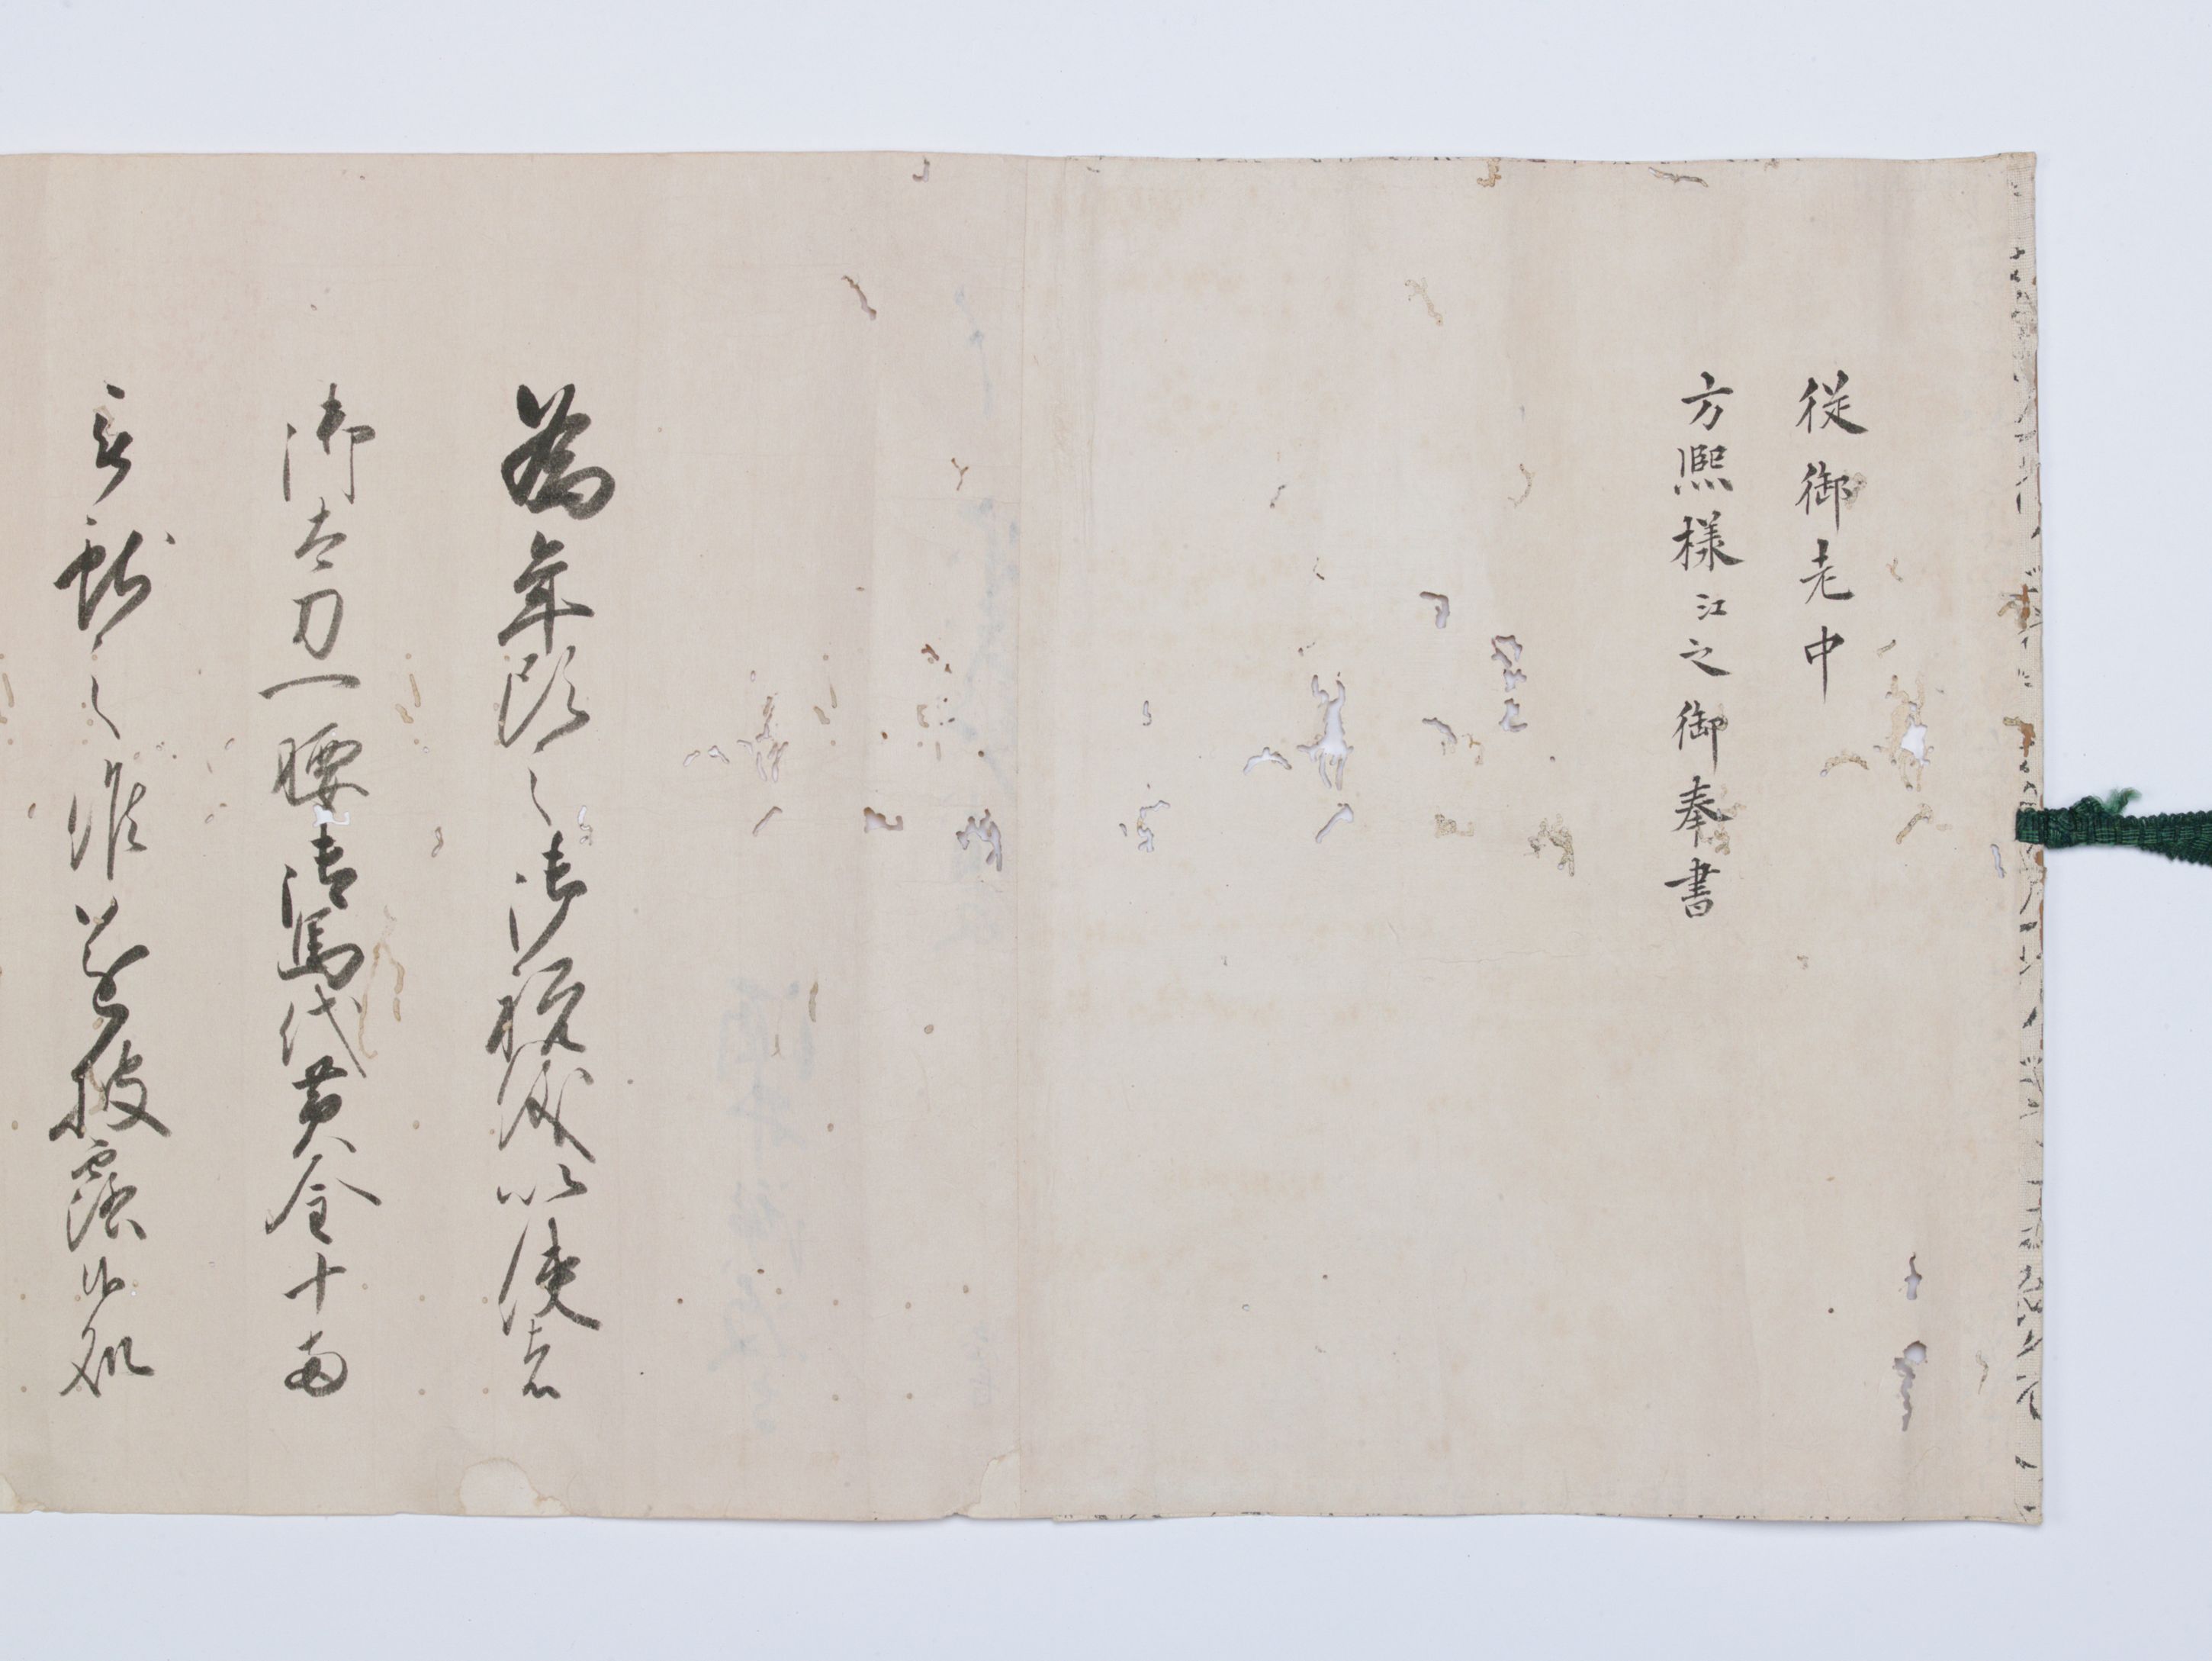 従御老中
方熈様江之御奉書
為年頭之御祝儀以使者
御太刀一腰御馬代黄金十両
被献之候遂披露候処